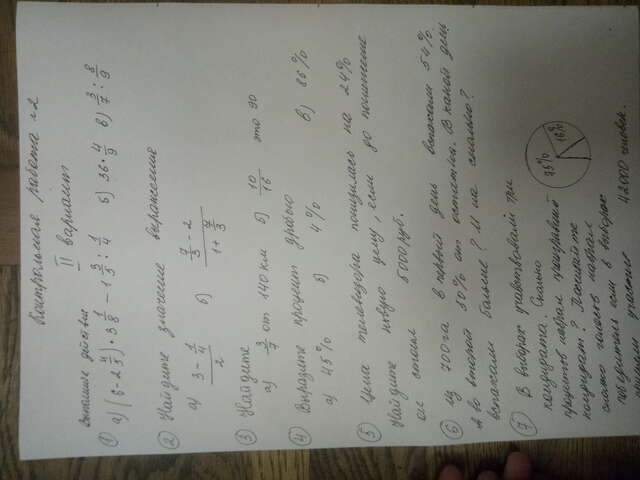 Контрольная работа №2
II вариант
Выполните действия
① а) (6 - 2 4/5) • 3 1/8 - 1 3/5 : 1/4 б) 36 • 4/9 в) 3/7 : 8/9
② Найдите значение выражения
а) (3 - 1/4)/2 б) (7/3 - 2)/(1 + 7/3)
③ Найдите
а) 3/7 от 140 км б) 10/16 это 90
④ Выразите процент дробью
а) 45% б) 4% в) 86%
⑤ Цена телевизора понизилась на 24%
Найдите новую цену, если до понижения
он стоил 5000 руб.
⑥ Из 700 га в первый день вспахали 54%
А во второй 50% от остатка. В какой день
вспахали больше? И на сколько?
⑦ В выборах участвовали три
кандидата. Сколько
процентов набрал проигравший
кандидат? Посчитайте
сколько голосов набрал
победитель если в выборах
приняли участие 42000 человек.
75% 16%